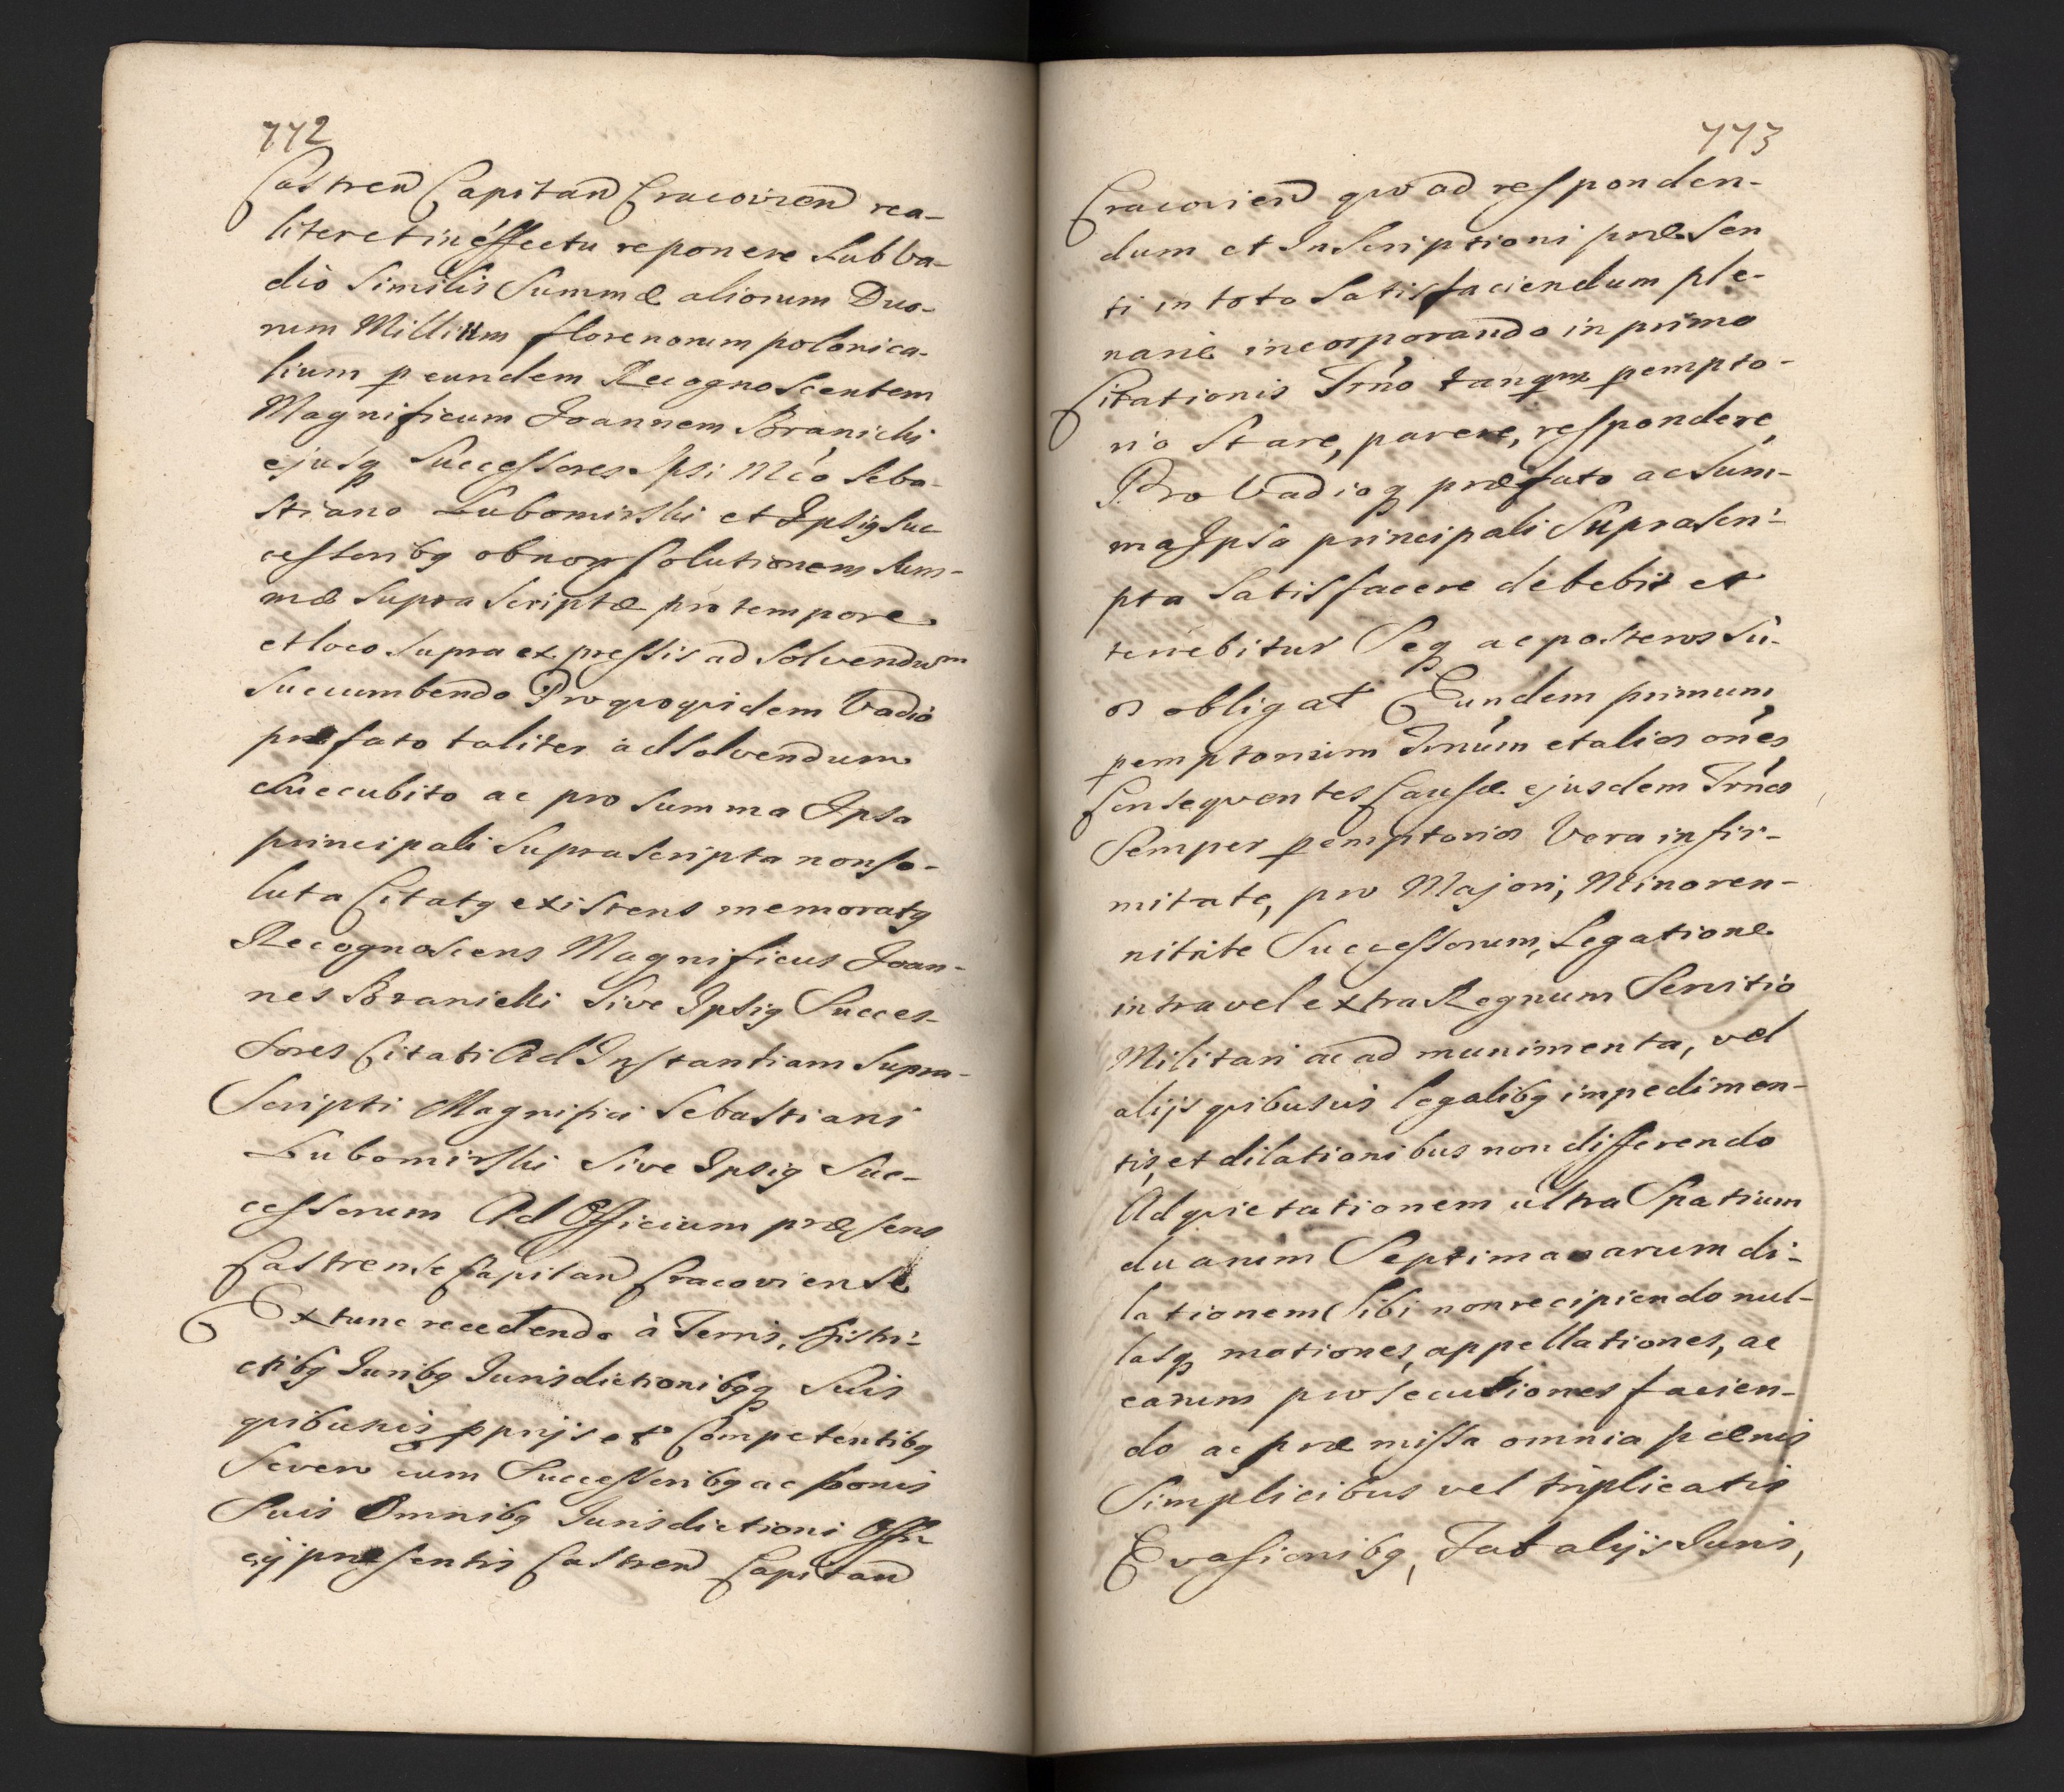 772
Castren Capitan Cracovien rea-
liter et in effectu reponere sub Va-
dio Similis Summæ aliorum Duo-
rum Millium florenorum polonica-
lium p eundem Recognoscentem
Magnificum Joannem Branicki
ejusq Successores Ipsi Mco Seba-
stiano Lubomirski et Ipsig Suc
cessoribg ob non solutionem Sum-
mæ Supra Scriptæ pro tempore
et loco Supra expressis ad Solvendum
Succumbendo Pro quoquidem Vadio
præfato taliter ad Solvendum
Succubito ac pro Summa Ipsa
principali Suprascripta non so-
luta Citatg existens memoratg
Recognoscens Magnificus Joan-
nes Branicki Sive Ipsig Succes-
sores Citati Ad Instantiam Supra-
Scripti Magnifici Sebastiani
Lubomirski Sive Ipsig Suc-
cessorum Ad Officium præsens
Castrense Capitan Cracoviense
Extunc recedendo à Terris, Distri-
ctibg Juribg Jurisdictionibgq Suis
quibusvis pprijs et Competentibg
Severo cum Successoribg ac bonis
Suis Omnibg Jurisdictioni Offi-
cij præsentis Castren Capitan
773
Cracovien quo ad responden-
dum et Inscriptioni præsen
ti in toto Satisfaciendum ple-
narie incorporando in primo
Citationis Trno tanqm pempto-
rio Stare, parere, respondere,
Pro Vadioq præfato ac Sum-
ma Ipsa principali Suprascri-
pta Satisfacere debebit et
tenebitur Seq ac posteros Su-
os obligat Eundem primum
pemptorium Trnum et alios ones
Consequentes Causæ ejusdem Trnos
Semper pemptorios Vera infir-
mitate, pro Majori, Minoren-
nitate Successorum, Legatione
intra vel extra Regnum Servitio
Militari ac ad munimenta, vel
alijs quibusvis legalibg impedimen-
tis, et dilationibus non differendo
Ad quietationem ultra Spatium
duarum Septimanarum di-
lationem Sibi non recipiendo nul-
lasq motiones, appellationes, ac
earum prosecutiones facien-
do ac præmissa omnia pœnis
Simplicibus vel triplicatis
Evasionibg, Fatalijs Juris,